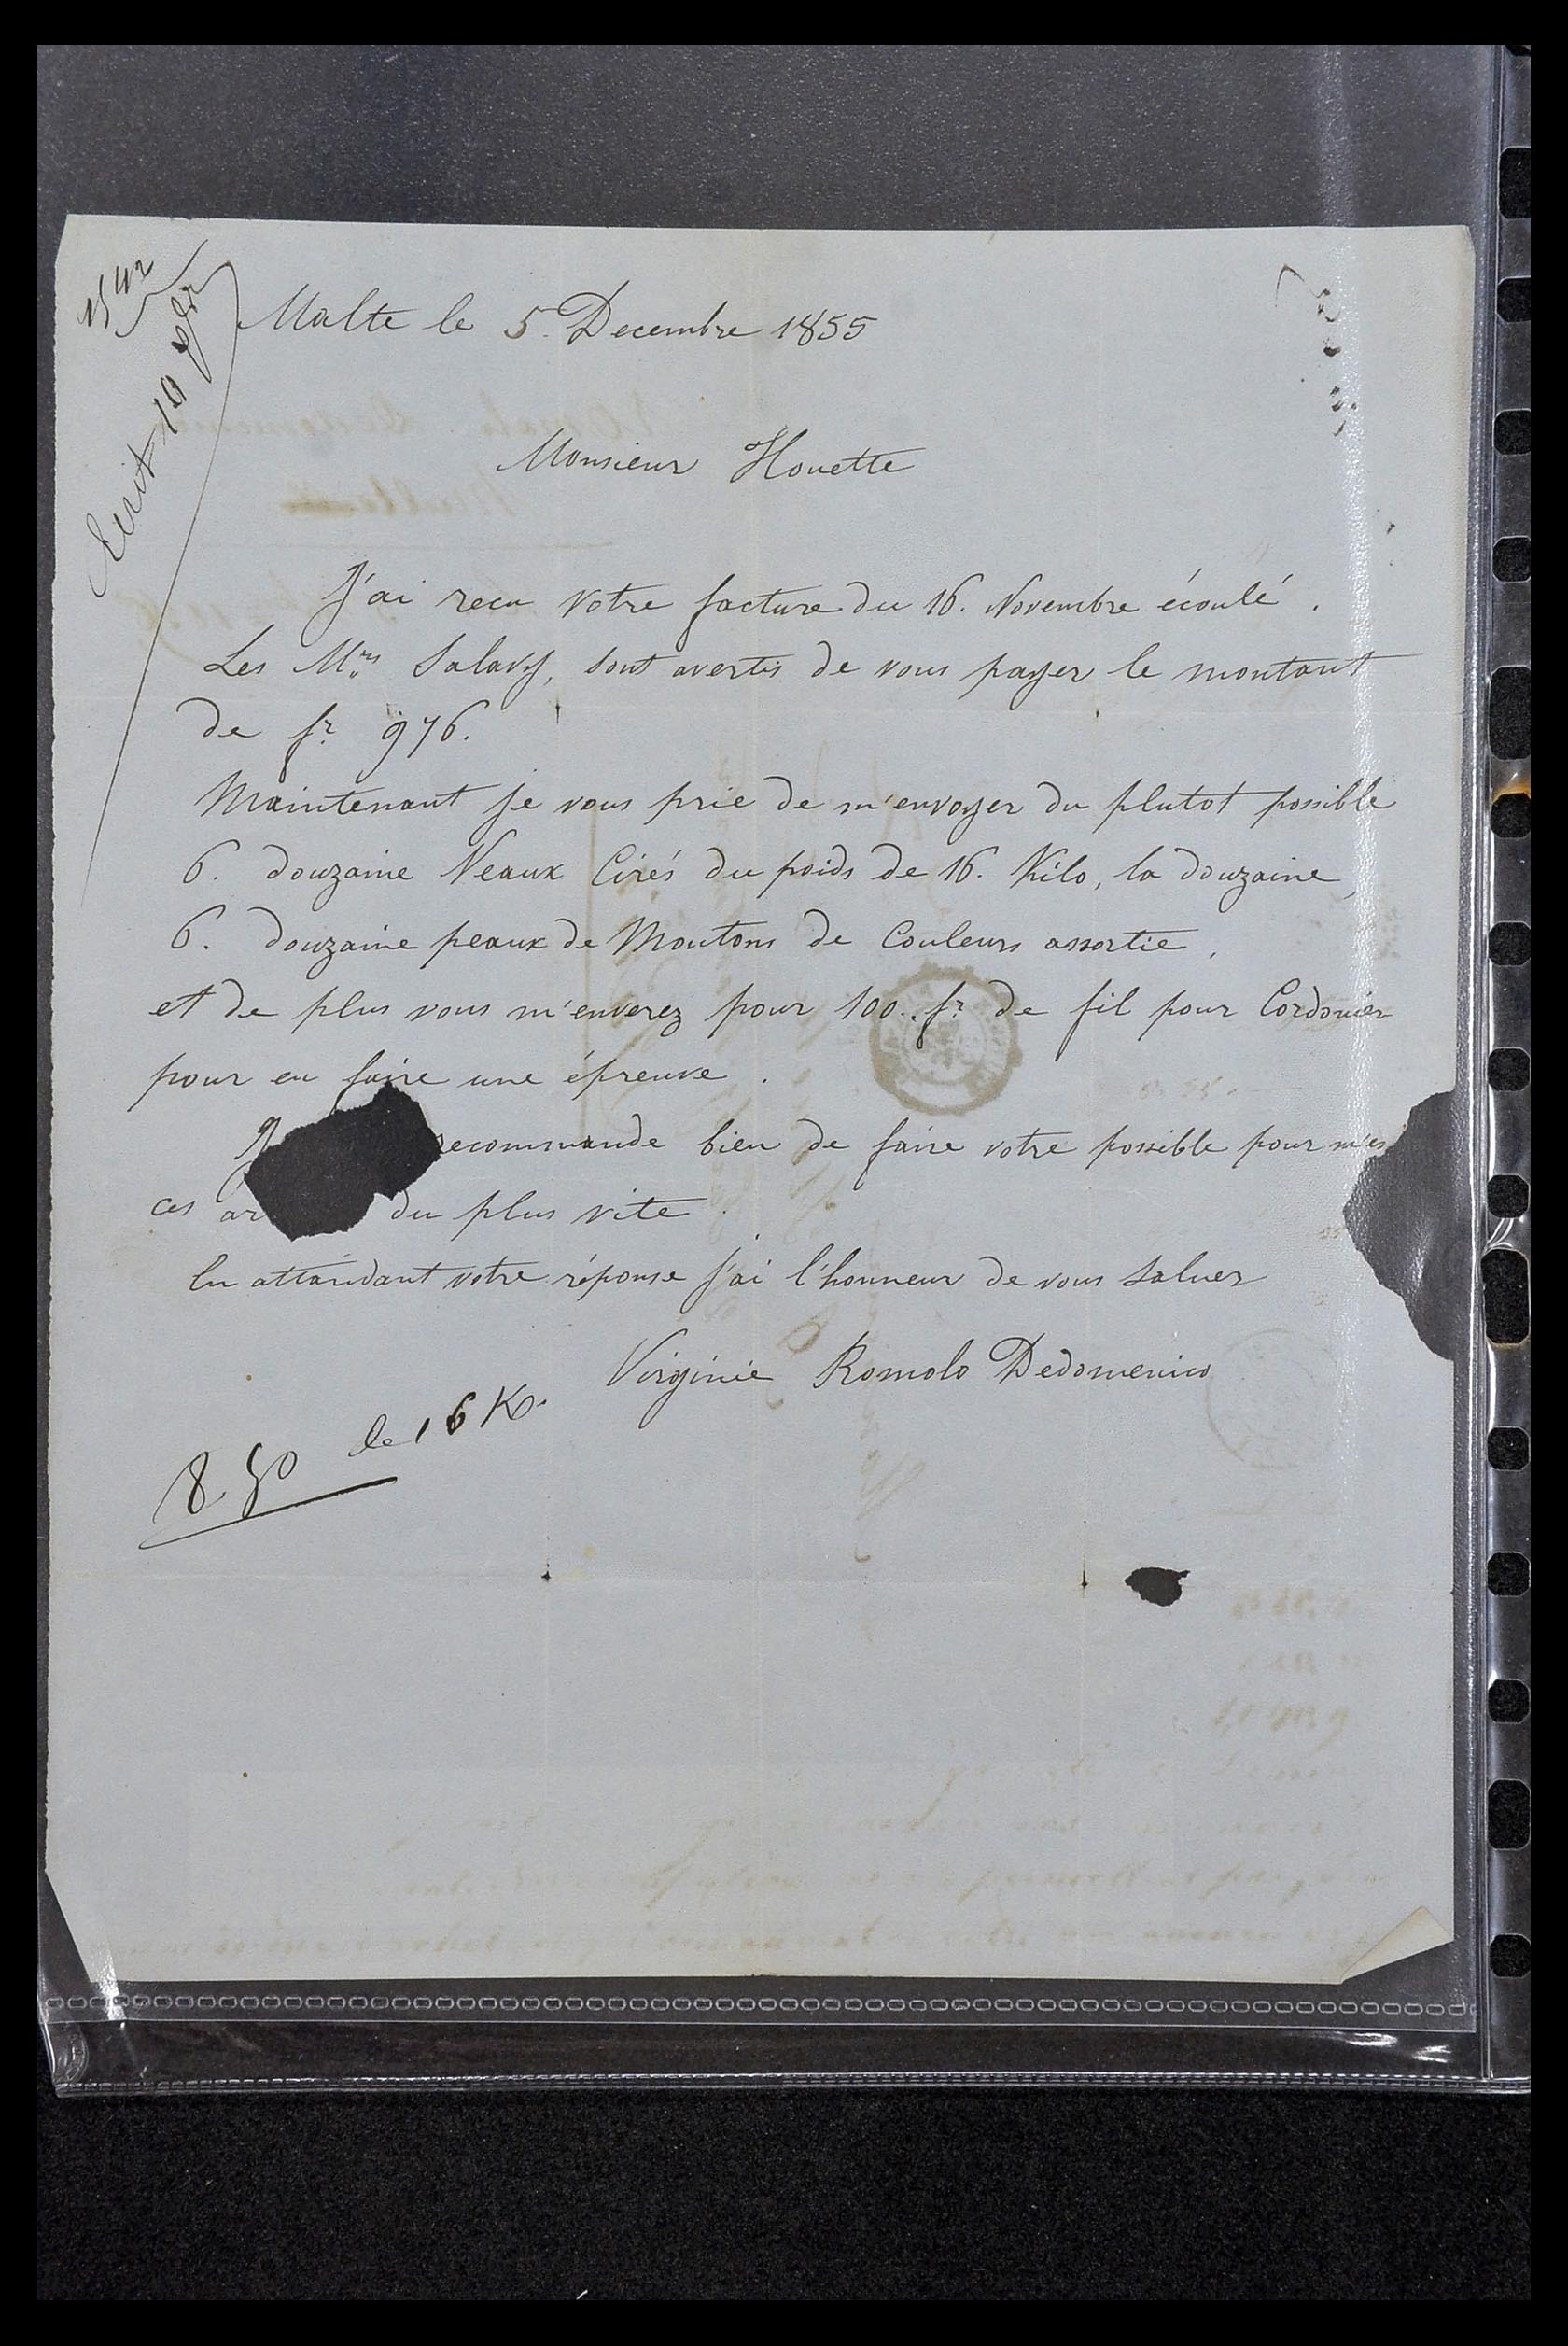 1542
Ecrit 19
Malte le 5. Decembre 1855
Monsieur Houette
J'ai recu votre facture du 16. Novembre écoulé.
Les Mrs Salavy, sont avertis de vous payer le montant
de fr 976.
Maintenant je vous prie de m'envoyer du plutot possible
6. douzaine Veaux Cirés du poids de 16. Kilo, la douzaine,
6. douzaine peaux de Moutons de Couleurs assortie,
et de plus vous m'enverez pour 100. fr de fil pour Cordonier
pour en faire une épreuve.
recommande bien de faire votre possible pour
ces du plus vite.
En attandant votre réponse j'ai l'honneur de vous Saluer
Virginie Romolo Dedomenico
le 16 Ko.
8.50